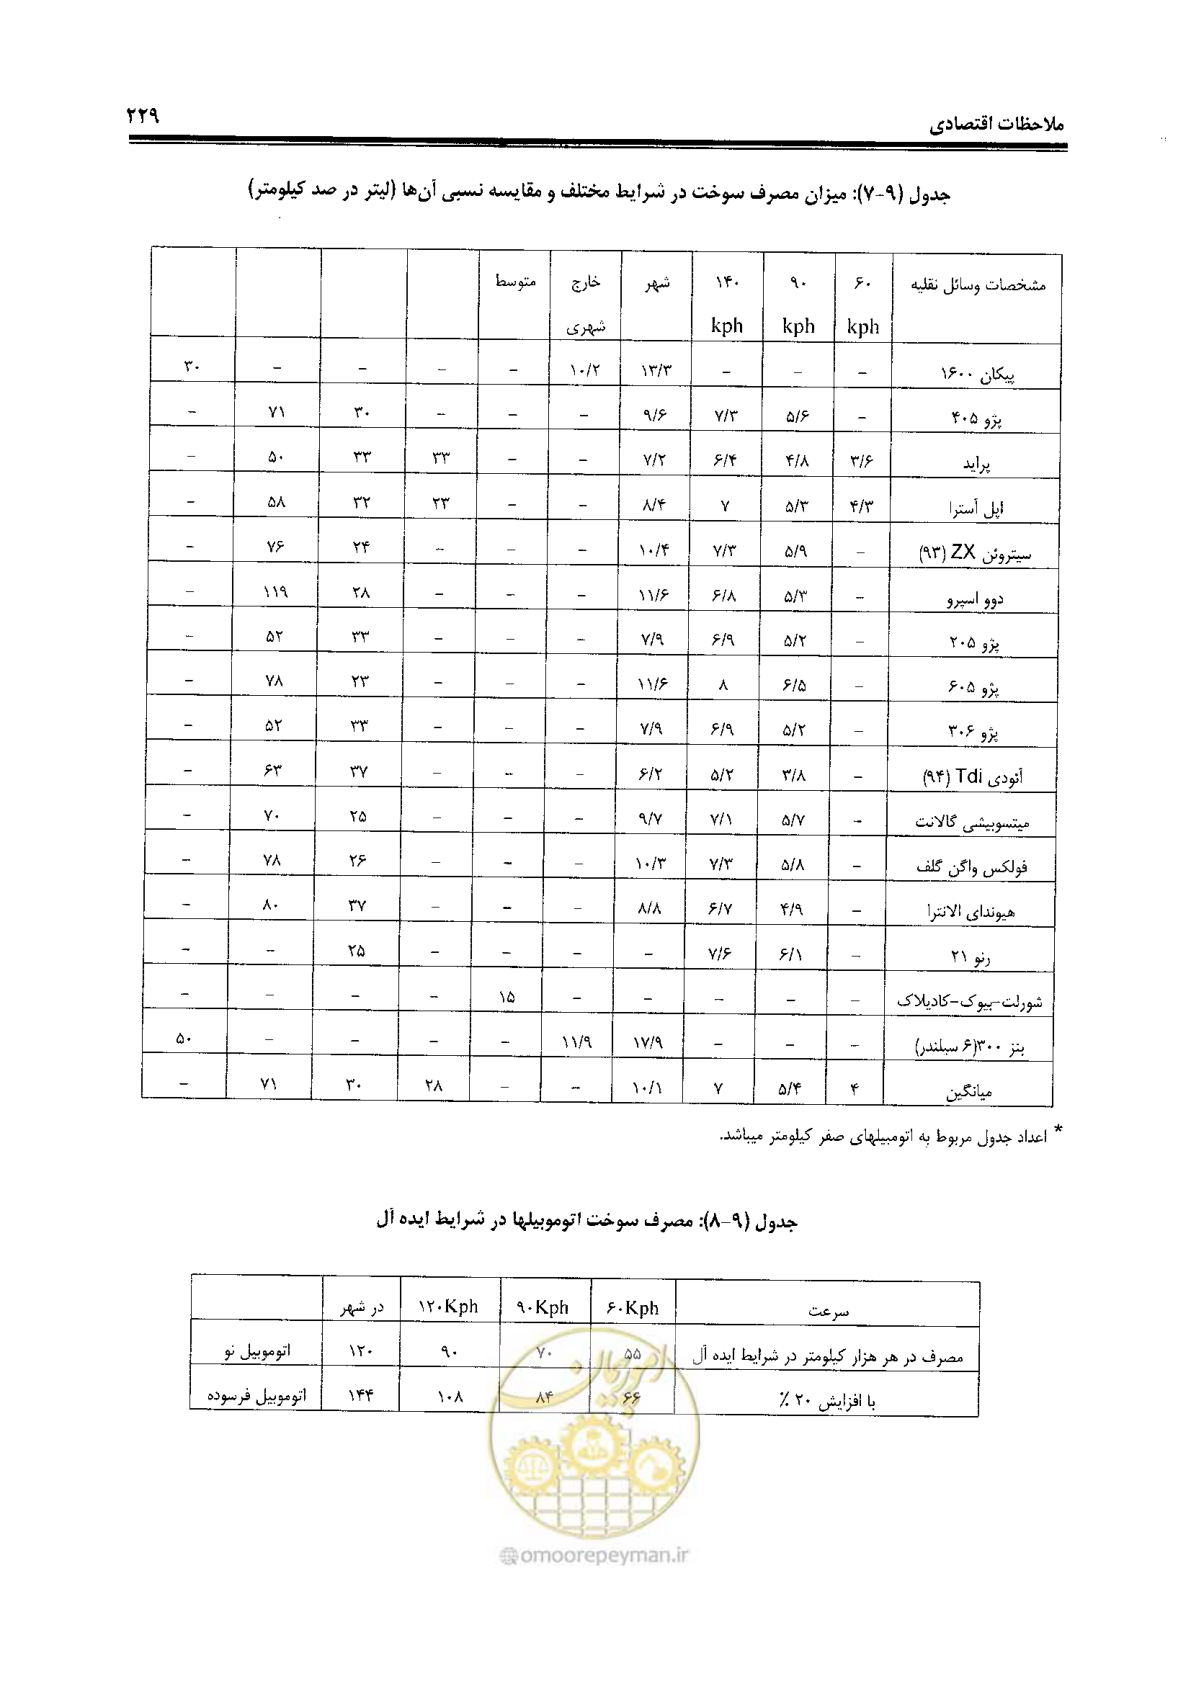 ملاحظات اقتصادی ۲۲۹
جدول (۹-۷): میزان مصرف سوخت در شرایط مختلف و مقایسه نسبی آن‌ها (لیتر در صد کیلومتر)
مشخصات وسائل نقلیه ۶۰ ۹۰ ۱۴۰ شهر خارج متوسط
kph kph kph شهری
پیکان ۱۶۰۰ – – – ۱۳/۳ ۱۰/۲ – – – – ۳۰
پژو ۴۰۵ – ۵/۶ ۷/۳ ۹/۶ – – – ۳۰ ۷۱ –
پراید ۳/۶ ۴/۸ ۶/۴ ۷/۲ – – ۳۳ ۳۳ ۵۰ –
اپل آسترا ۴/۳ ۵/۳ ۷ ۸/۴ – – ۲۳ ۳۲ ۵۸ –
سیتروئن ZX (۹۳) – ۵/۹ ۷/۳ ۱۰/۴ – – – ۲۴ ۷۶ –
دوو اسپرو – ۵/۳ ۶/۸ ۱۱/۶ – – – ۲۸ ۱۱۹ –
پژو ۲۰۵ – ۵/۲ ۶/۹ ۷/۹ – – – ۳۳ ۵۲ –
پژو ۶۰۵ – ۶/۵ ۸ ۱۱/۶ – – – ۲۳ ۷۸ –
پژو ۳۰۶ – ۵/۲ ۶/۹ ۷/۹ – – – ۳۳ ۵۲ –
آئودی Tdi (۹۴) – ۳/۸ ۵/۲ ۶/۲ – – – ۳۷ ۶۳ –
میتسوبیشی گالانت – ۵/۷ ۷/۱ ۹/۷ – – – ۲۵ ۷۰ –
فولکس واگن گلف – ۵/۸ ۷/۳ ۱۰/۳ – – – ۲۶ ۷۸ –
هیوندای الانترا – ۴/۹ ۶/۷ ۸/۸ – – – ۳۷ ۸۰ –
رنو ۲۱ – ۶/۱ ۷/۶ – – – – ۲۵ – –
شورلت-بیوک-کادیلاک – – – – – ۱۵ – – – –
بنز ۳۰۰(۶ سیلندر) – – – ۱۷/۹ ۱۱/۹ – – – – ۵۰
میانگین ۴ ۵/۴ ۷ ۱۰/۱ – – ۲۸ ۳۰ ۷۱ –
* اعداد جدول مربوط به اتومبیلهای صفر کیلومتر میباشد.
جدول (۹-۸): مصرف سوخت اتوموبیلها در شرایط ایده آل
سرعت ۶۰Kph ۹۰Kph ۱۲۰Kph در شهر
مصرف در هر هزار کیلومتر در شرایط ایده آل ۵۵ ۷۰ ۹۰ ۱۲۰ اتوموبیل نو
با افزایش ۲۰ ٪ ۶۶ ۸۴ ۱۰۸ ۱۴۴ اتوموبیل فرسوده
امور پیمان
@omoorepeyman.ir